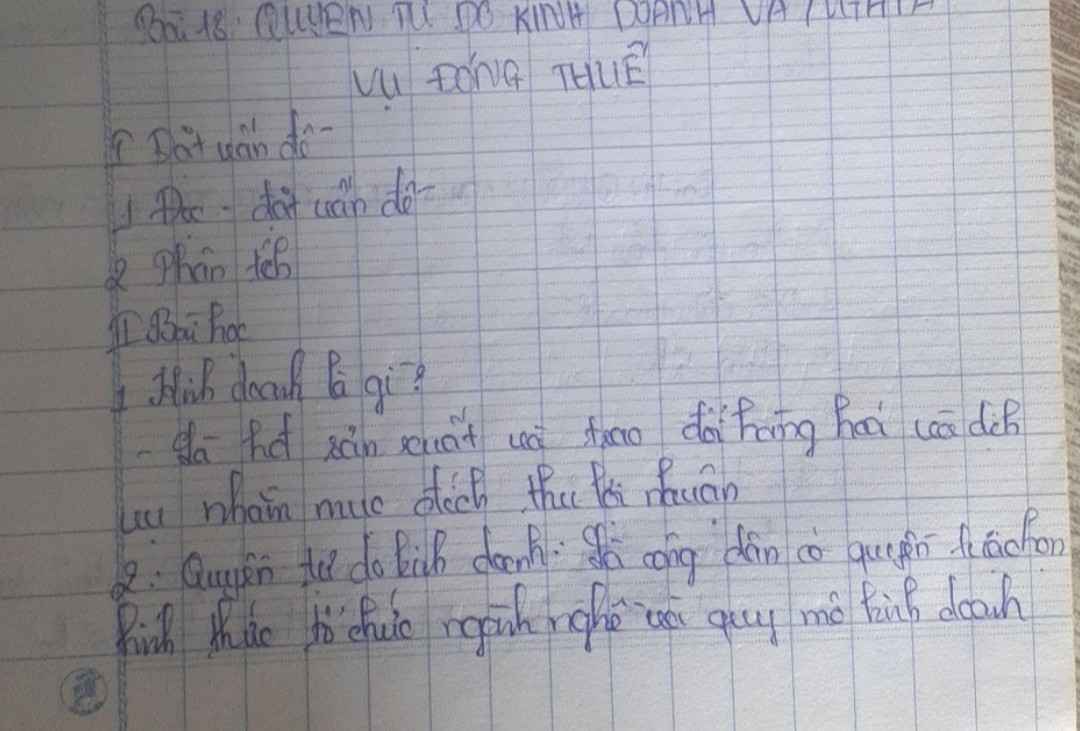 Bài 18: QUYỀN TỰ DO KINH DOANH VÀ NGHĨA
VỤ ĐÓNG THUẾ
I Đặt vấn đề
1 Đọc - đặt vấn đề
2 Phân tích
II Bài học
1 Kinh doanh là gì?
- Là hđ sản xuất và trao đổi hàng hoá và dịch
vụ nhằm mục đích thu lợi nhuận
2. Quyền tự do kinh doanh: Là công dân có quyền lựa chọn
hình thức tổ chức ngành nghề và quy mô kinh doanh